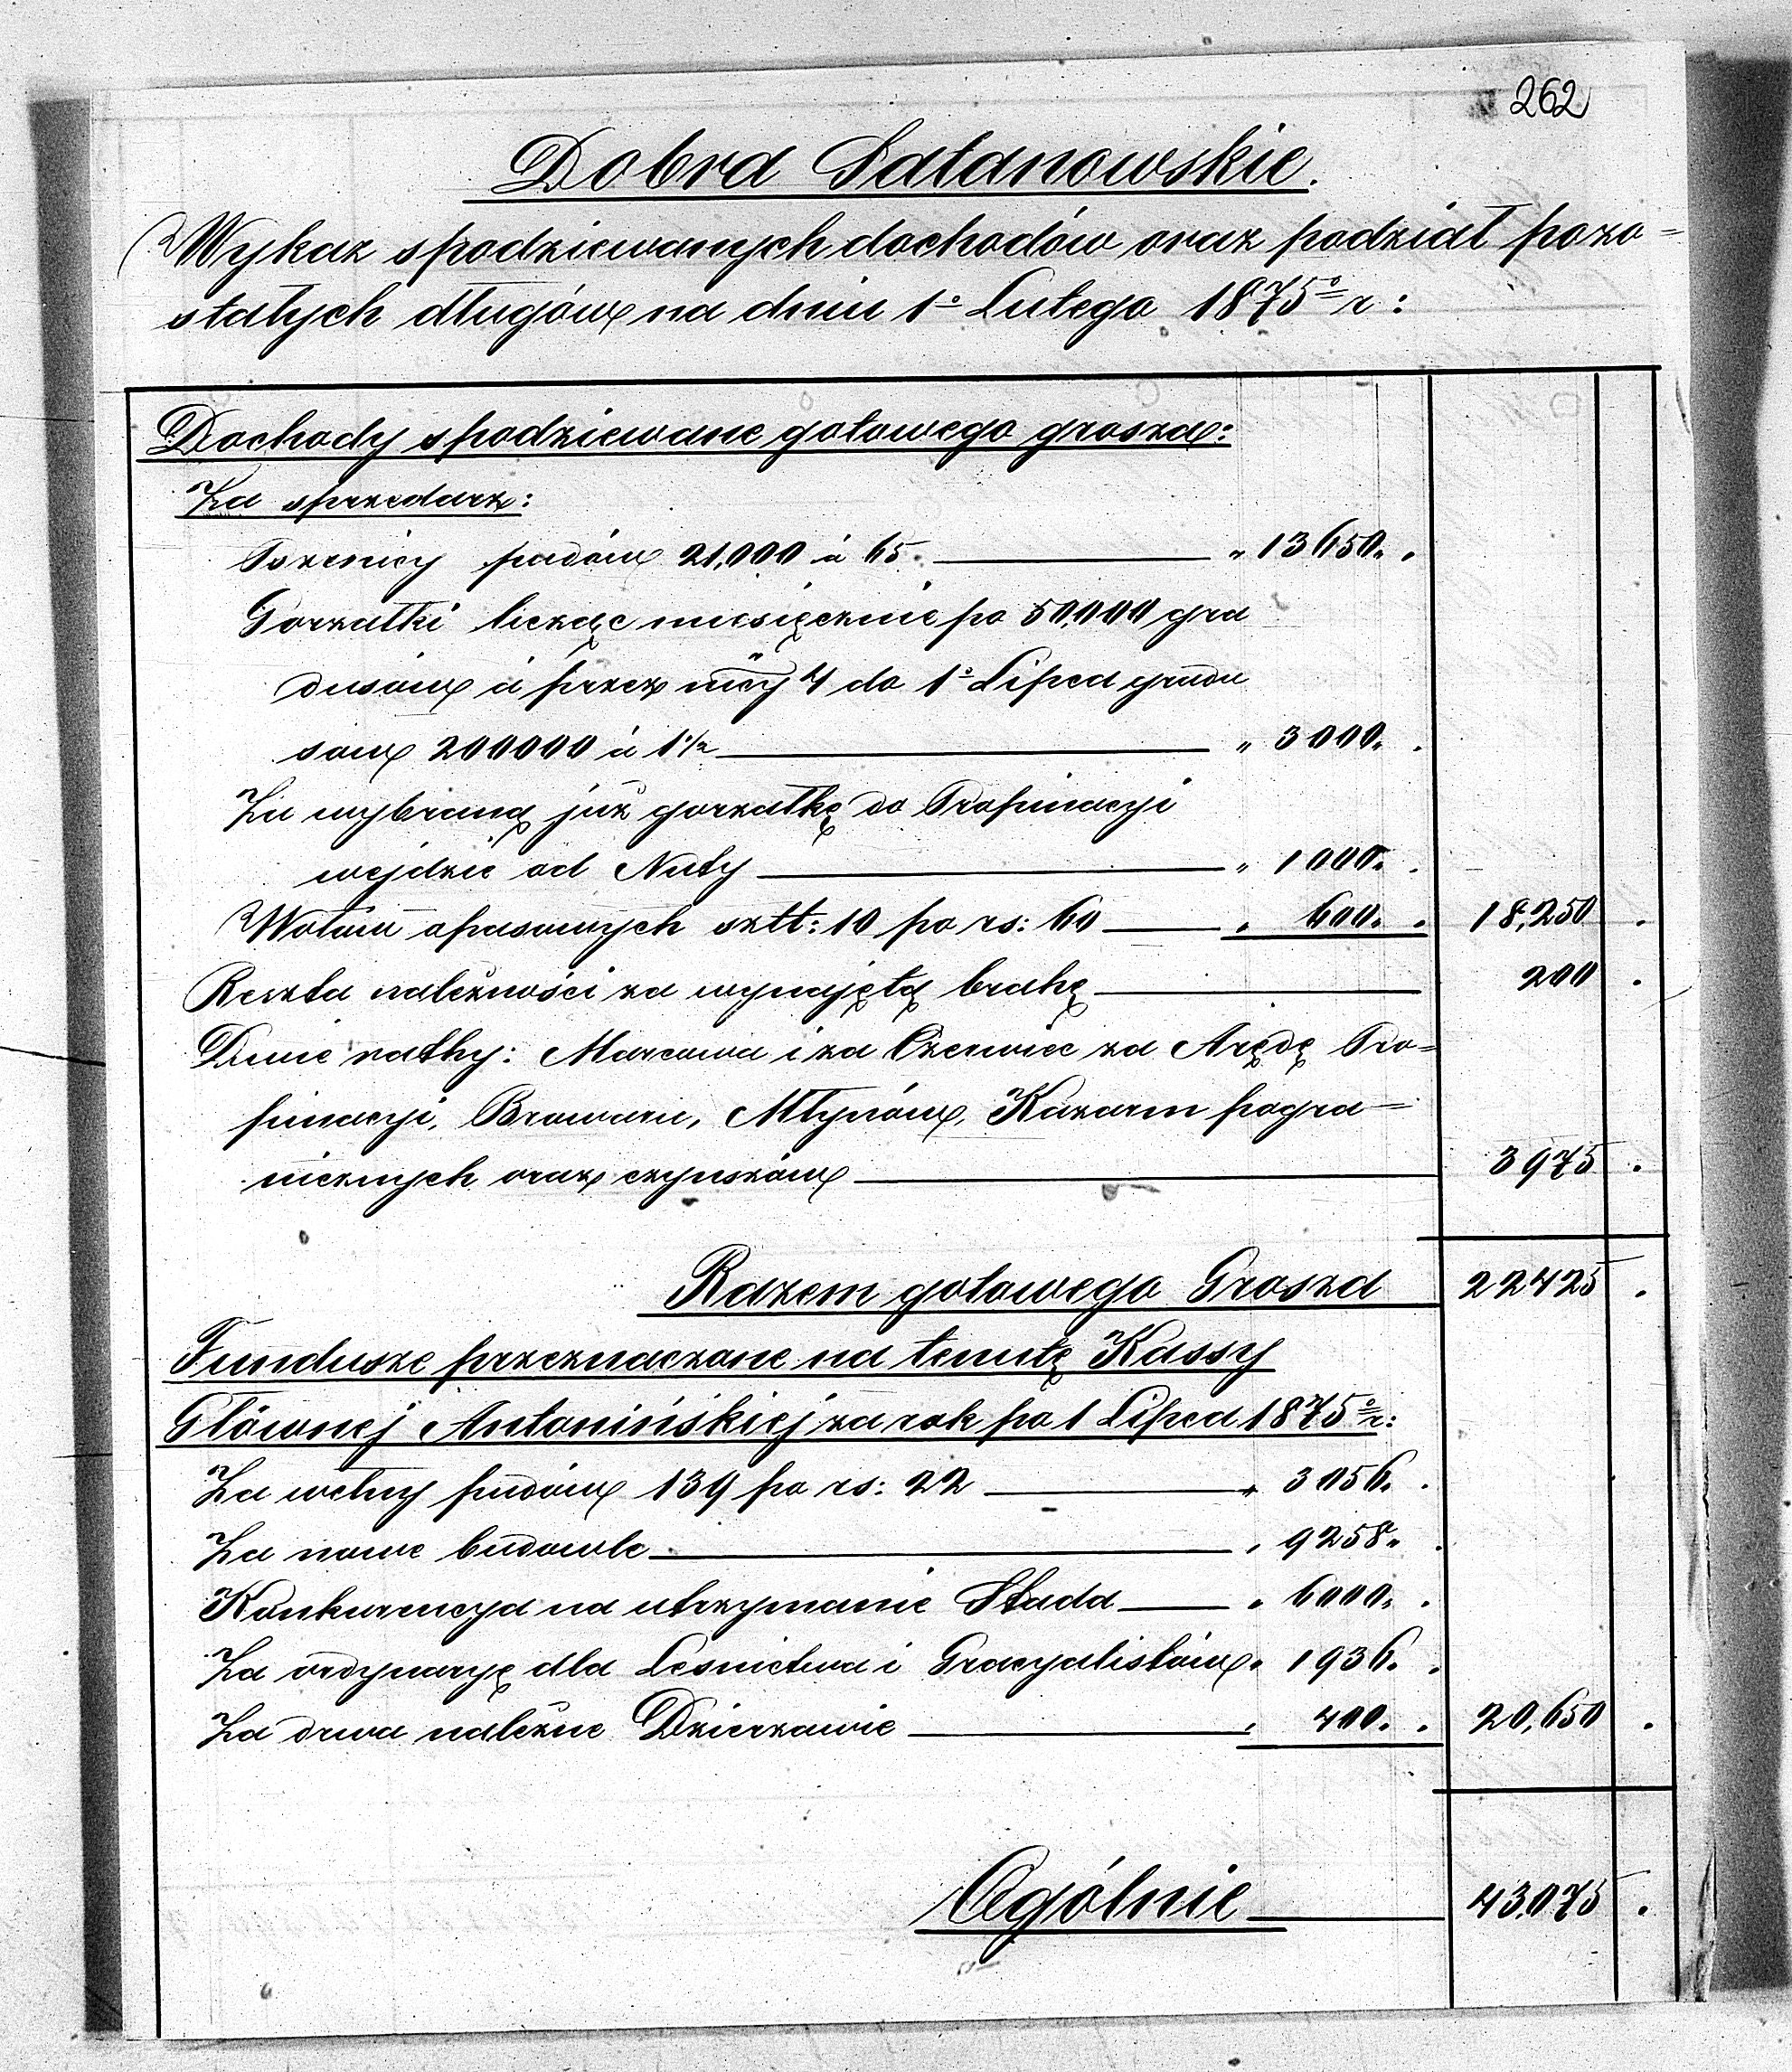 262
Dobra Satanowskie.
Wykaz spodziewanych dochodów oraz podział pozo=
stałych długów na dniu 1º Lutego 1875º r:
Dochody spodziewane gotowego grosza:
Za sprzedarz:
Pszenicy pudów 21,000 à 65. „ 13650. .
Gorzałki licząc miesięcznie po 50,000 gra
dusów à przez mcy 4 do 1º Lipca gradu
sów 200000 à 1½ „ 3000. .
Za wybraną już gorzałkę do Propinacyi
wejdzie od Nuty „ 1000. .
Wołów opasowych sztt: 10 po rs: 60 „ 600. . 18,250 .
Reszta należności za wynajętą brahę 200 .
Dwie ratky: Marcowa i za Czerwiec za Arędę Pro=
pinacyi, Browaru, Młynów, Kazarm pogra=
nicznych oraz czynszów 3975 .
Razem gotowego Grosza 22425 .
Fundusze przeznaczone na tenutę Kassy
Głównej Antonińskiej za rok po 1 Lipca 1875º r:
Za wełny pudów 139 po rs: 22 „ 3056. .
Za nowe budowle „ 9258. .
Konkurencya na utrzymanie Stada „ 6000. .
Za ordynaryę dla Leśnictwa i Gracyalistów „ 1936. .
Za drwa należne Dzierżawie „ 400. . 20,650 .
Ogólnie 43,075 .